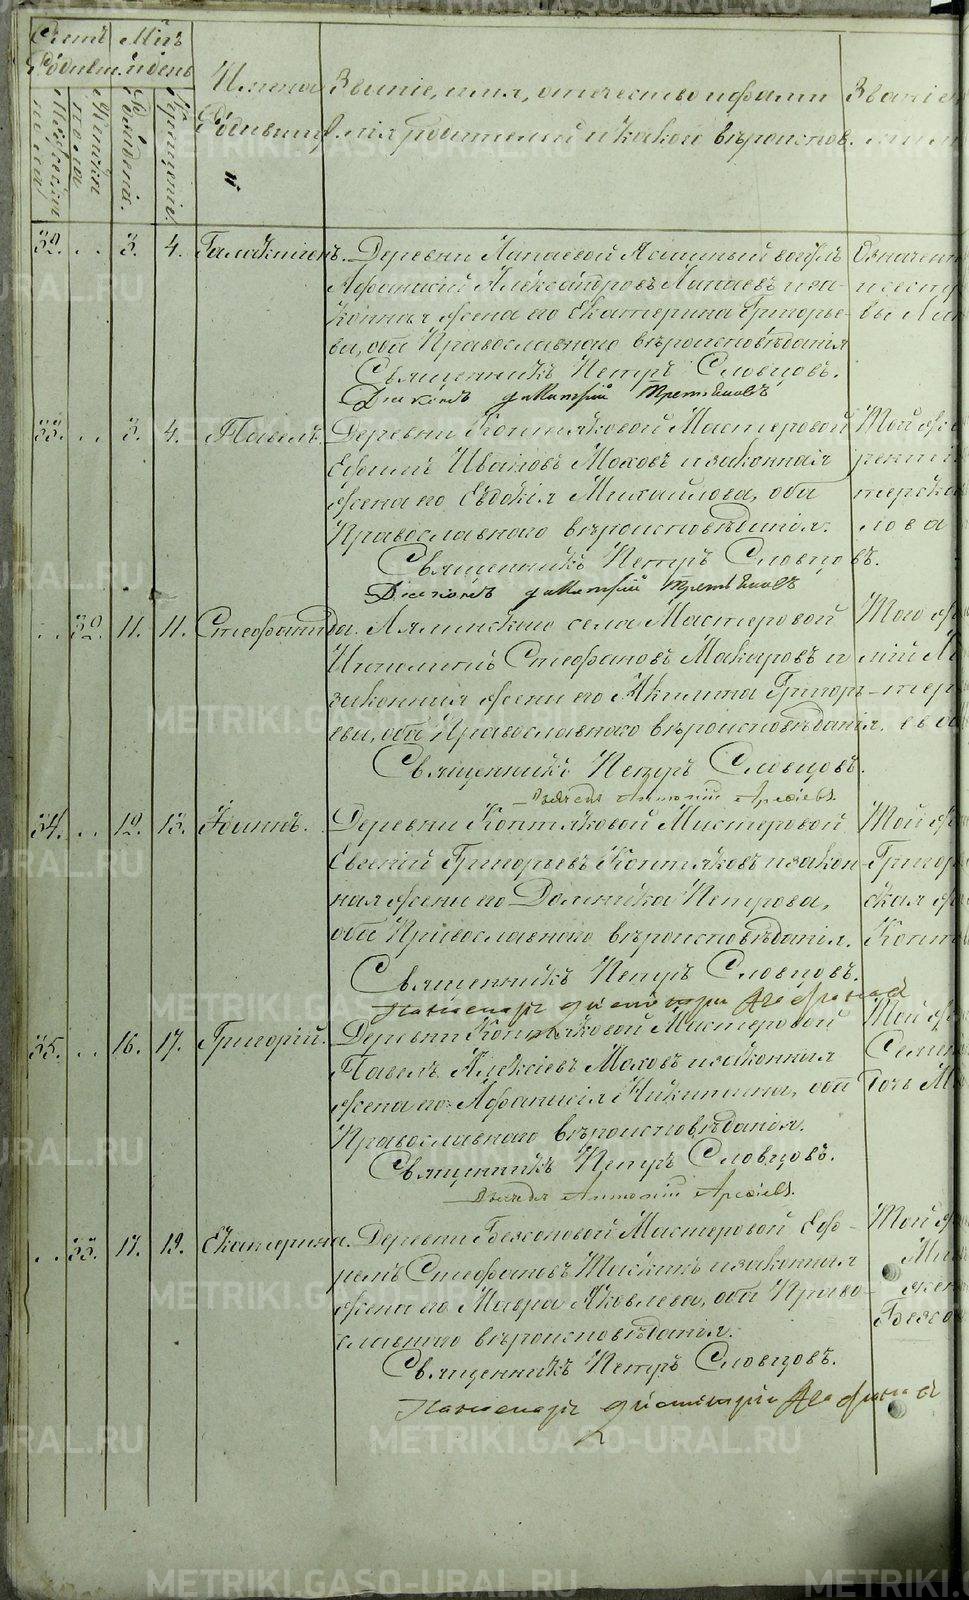 Счетъ Родивш.
Мцъ и день
Мужеска пола
Женска пола
Рожденія.
Крещенія
Имена Родивших.
Званіе, имя, отечество и фами
лія родителей и какого вѣроисповѣд.
Званіе
32. .. 3. 4. Галактіонъ. Деревни Лапаевой Ясашный вогулъ
Афанасій Александровъ Лапаевъ и за-
конная жена его Екатерина Григорье-
ва, оба Православнаго вѣроисповѣданія
Священникъ Петръ Словцовъ.
Діаконъ Димитрій Третьяковъ
Означенн
и сестр
33. .. 3. 4. Павелъ. Деревни Коптяковой Мастеровой
Ефимъ Ивановъ Моховъ и законная
жена его Евдокія Михайлова, оба
Православнаго вѣроисповѣданія.
Священникъ Петръ Словцовъ.
Діаконъ Димитрій Третьяковъ
Той же
лова
.. 32. 11. 11. Стефанида. Лялинскаго села Мастеровой
Стефановъ Макаровъ и
законная жена его Акилина Григорь-
ева, оба Православнаго вѣроисповѣданія.
Священникъ Петръ Словцовъ.
Того же
34. .. 12. 13. Іоаннъ. Деревни Коптяковой Мастеровой
Евгеній Григорьевъ Коптяковъ и закон-
ная жена его Домника Петрова,
оба Православнаго вѣроисповѣданія.
Священникъ Петръ Словцовъ.
Той же
Григор
ская
Копт
35. .. 16. 17. Григорій. Деревни Коптяковой Мастеровой
Павелъ Алексіевъ Моховъ и законная
жена его Афанасія Никитина, оба
Православнаго вѣроисповѣданія.
Священникъ Петръ Словцовъ.
Той же
дочь
.. 33. 17. 19. Екатерина. Деревни Бессоновой Мастеровой Еф-
ремъ Стефановъ Таскинъ и законная
жена его Мавра Яковлева, оба Право-
славнаго вѣроисповѣданія.
Священникъ Петръ Словцовъ.
Той же
Бессо
METRIKI.GASO-URAL.RU